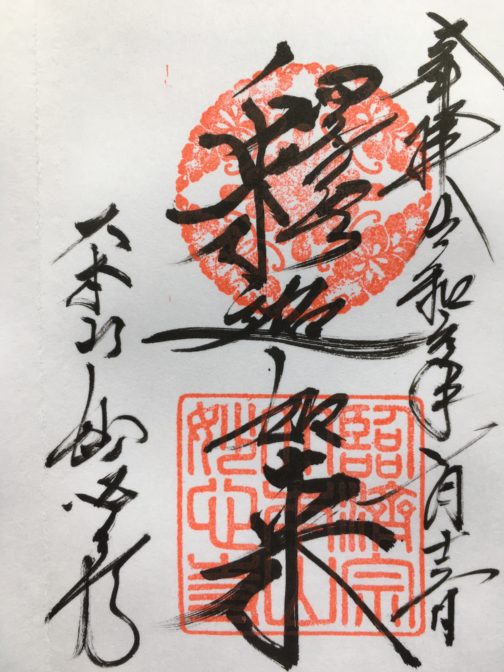 奉拝 令和元年 月十 日
釋迦如来
大本山 妙心寺
臨濟宗
妙心寺